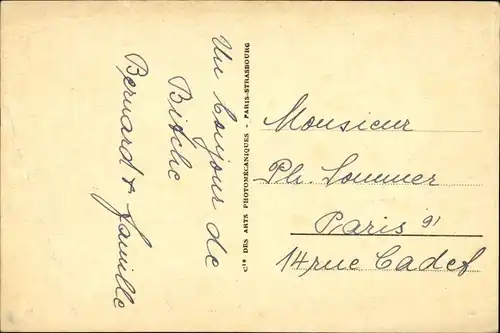 Un bonjour de
Bitche
Bernard & famille
Cie DES ARTS PHOTOMÉCANIQUES - PARIS-STRASBOURG
Monsieur
Ph. Sommer
Paris 9I
14 rue Cadet